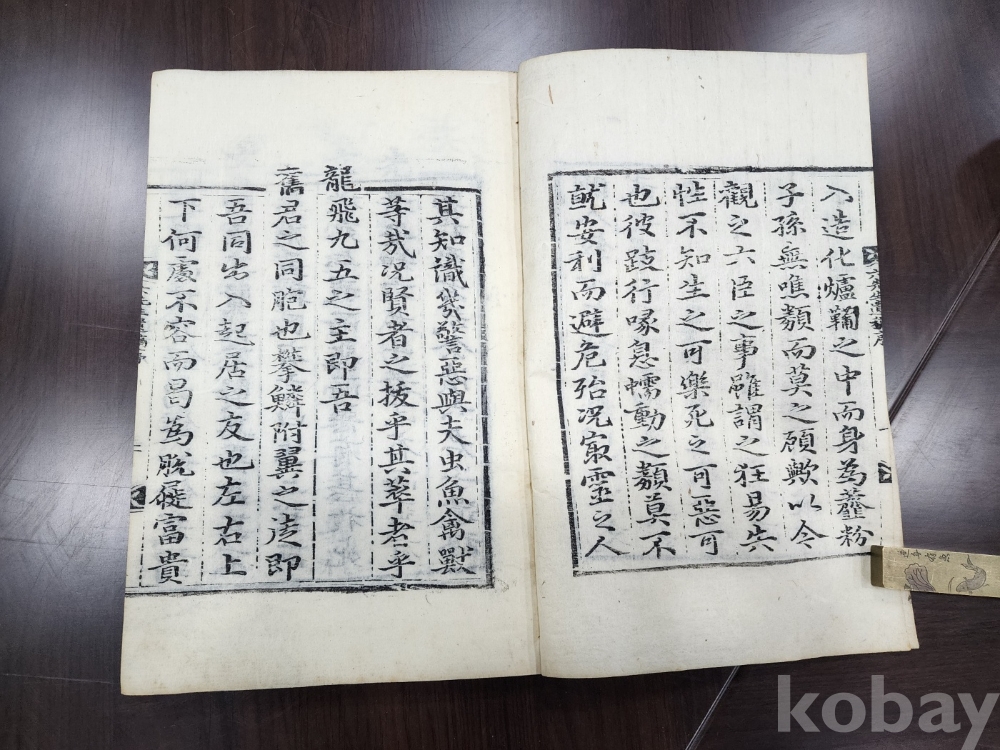 入造化爐鞴之中而身為虀粉
子孫無噍類而莫之顧歟以今
觀之六臣之事雖謂之狂易失
性不知生之可樂死之可惡可
也彼跂行喙息蠕動之類莫不
就安利而避危殆况㝡靈之人
其知識幾警惡與夫虫魚禽獸
等㢤况賢者之拔乎其萃者乎
龍飛九五之主即吾
舊君之同胞也攀鱗附翼之徒即
吾同出入起居之友也左右上
下何處不容而曷為脫屣富貴
kobay